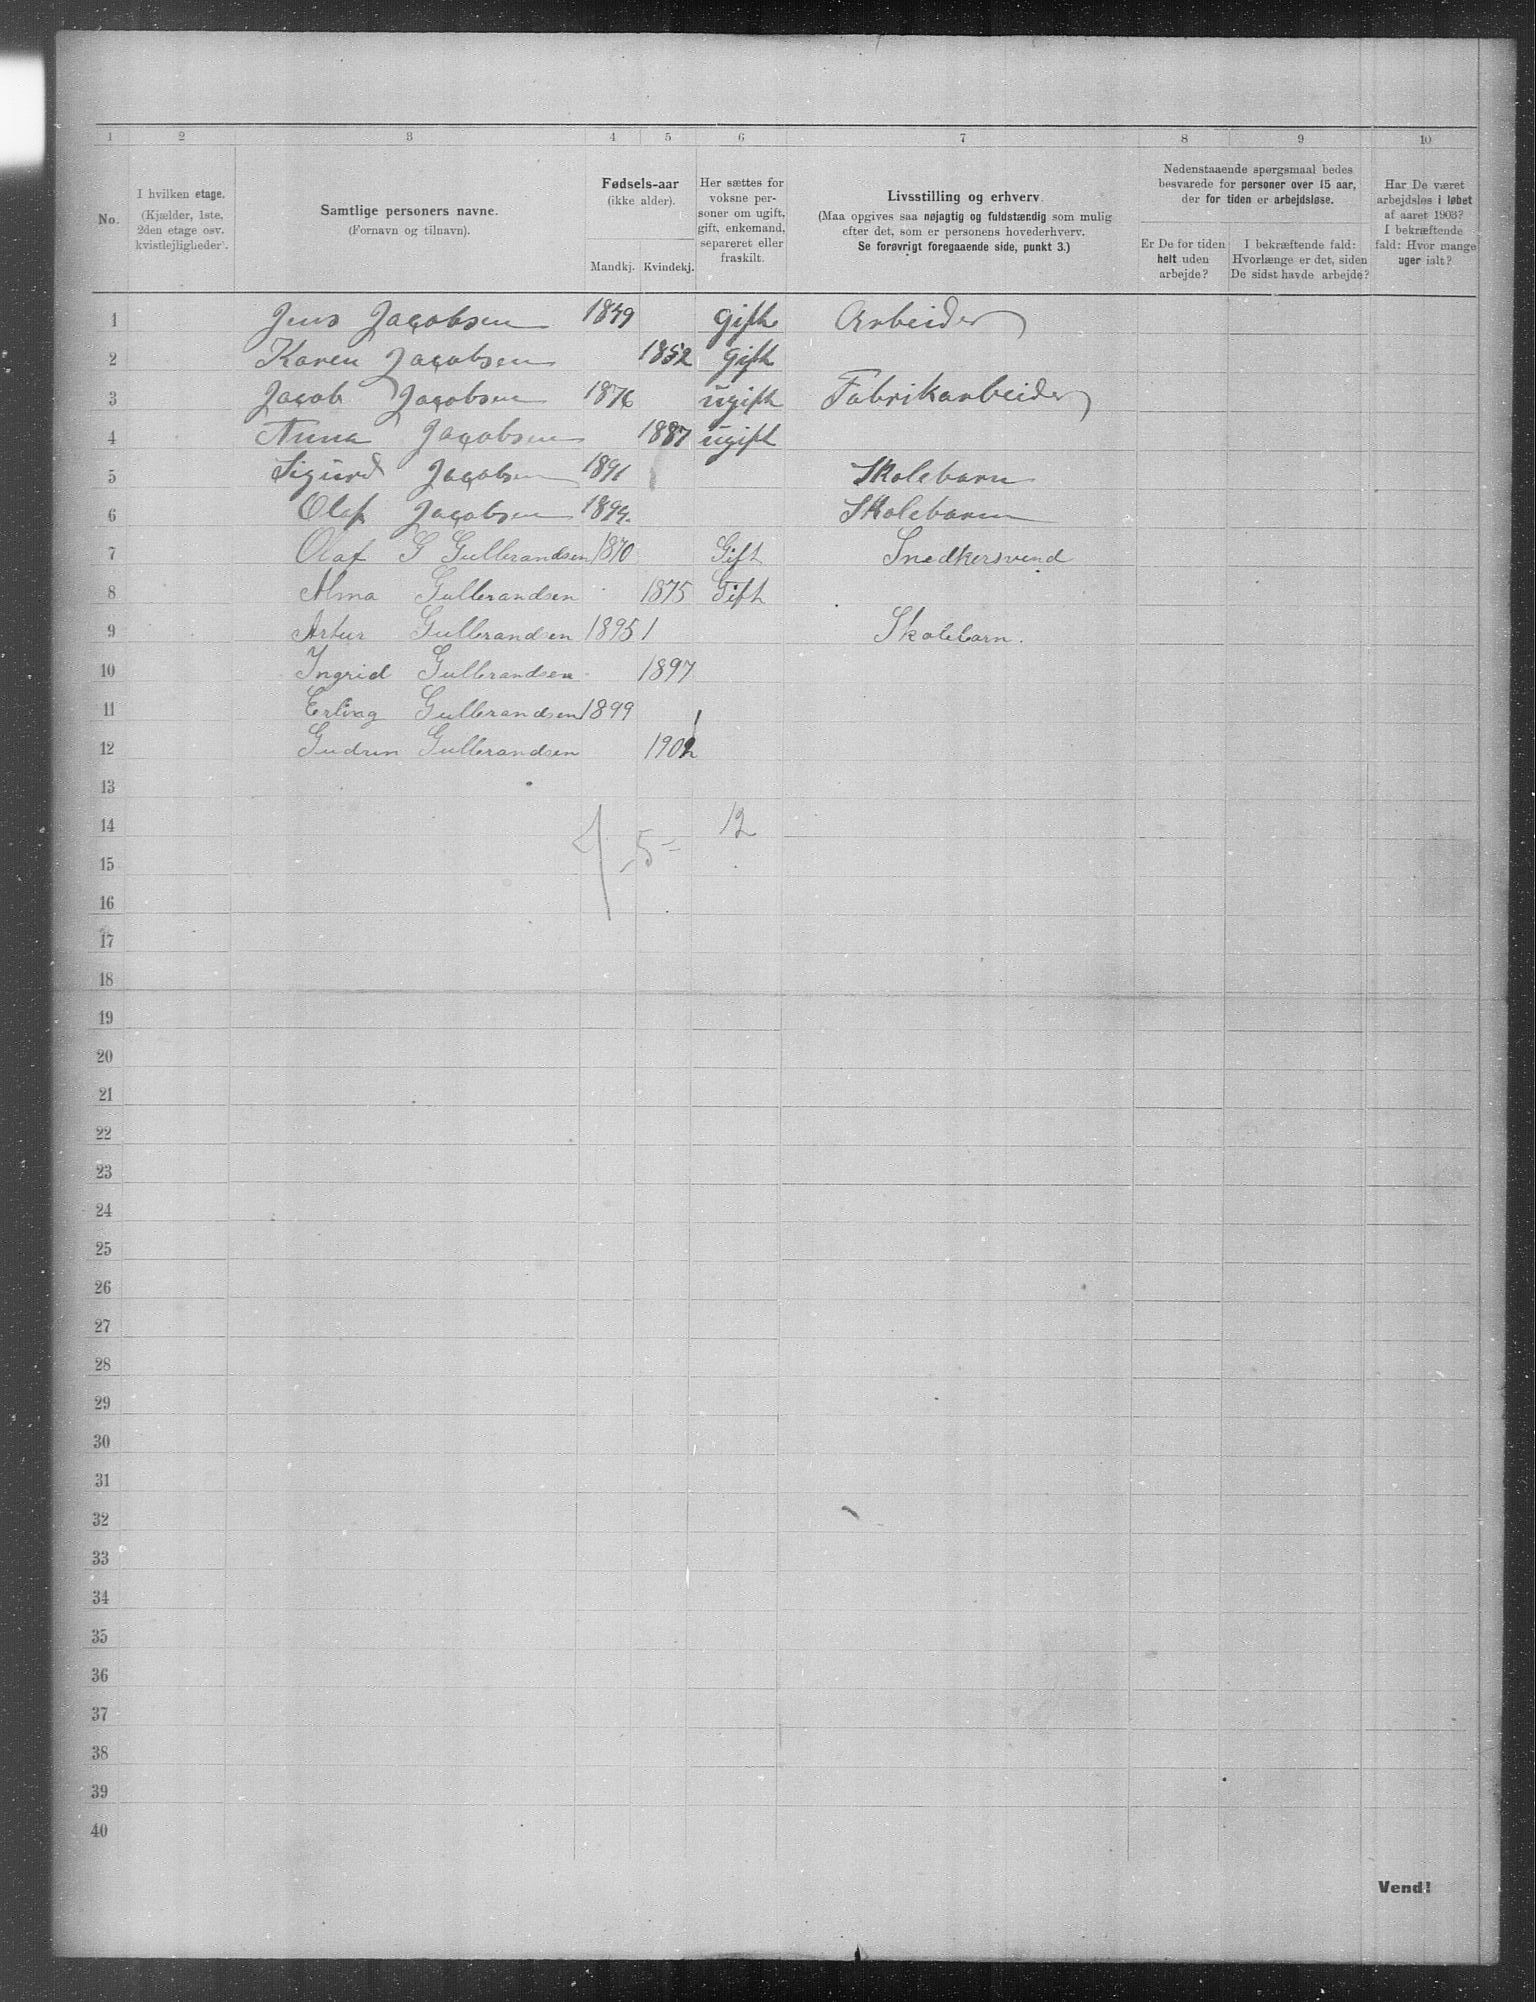 1 2 3 4 5 6 7 8 9 10
No.
I hvilken etage.
(Kjælder, 1ste,
2den etage osv.
kvistlejligheder).
Samtlige personers navne.
(Fornavn og tilnavn).
Fødsels-aar
(ikke alder).
Mandkj. Kvindekj.
Her sættes for
voksne per-
soner om ugift,
gift, enkemand,
separeret eller
fraskilt.
Livsstilling og erhverv.
(Maa opgives saa nøjagtig og fuldstændig som mulig
efter det, som er personens hovederhverv.
Se forøvrigt foregaaende side, punkt 3.)
Nedenstaaende spørgsmaal bedes
besvarede for personer over 15 aar,
der for tiden er arbejdsløse.
Er De for tiden
helt uden
arbejde?
I bekræftende fald:
Hvorlænge er det, siden
De sidst havde arbejde?
Har De været
arbejdsløs i løbet
af aaret 1903?
I bekræftende
fald: Hvor mange
uger ialt?
1 Jens Jacobsen 1849 gift Arbeider
2 Karen Jacobsen 1852 gift
3 Jacob Jacobsen 1876 ugift Fabrikarbeider
4 Anna Jacobsen 1887 ugift
5 Sigurd Jacobsen 1891 Skolebarn
6 Olaf Jacobsen 1894. Skolebarn
7 Olaf G Gulbrandsen 1870 Gift Snedkersvend
8 Alma Gulbrandsen 1875 Gift
9 Artur Gulbrandsen 1895 1 Skolebarn.
10 Ingrid Gulbrandsen 1897
11 Erling Gulbrandsen 1899
12 Gudrun Gulbrandsen 1902
13
14 12
15 5
16
17
18
19
20
21
22
23
24
25
26
27
28
29
30
31
32
33
34
35
36
37
38
39
40
Vend!